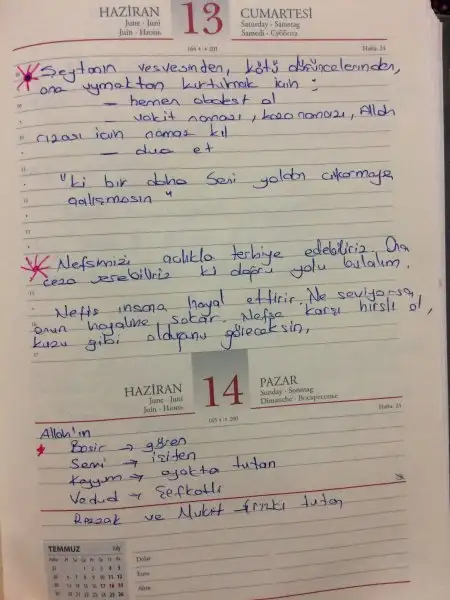 HAZİRAN
June - Juni
Juin - Июнь
13
CUMARTESİ
Saturday - Samstag
Samedi - Суббота
Hafta: 24
Şeytanın vesvesinden, kötü düşüncelerinden,
ona uymaktan kurtulmak için :
- hemen abdest al
- vakit namazı, kaza namazı, Allah
rızası için namaz kıl
- dua et
"ki bir daha seni yoldan çıkarmaya
çalışmasın"
Nefsimizi açlıkla terbiye edebiliriz. Ona
ceza verebiliriz ki doğru yolu bulalım.
Nefis insana hayal ettirir. Ne seviyorsa,
onun hayaline sokar. Nefse karşı hırslı ol,
kuzu gibi olduğunu göreceksin,
HAZİRAN
June - Juni
Juin - Июнь
14
PAZAR
Sunday - Sonntag
Dimanche - Воскресенье
Hafta: 24
Allah'ın
Basir → gören
Semi → işiten
Kayyum → ayakta tutan
Vedud → Şefkatli
Rezzak ve Mukit
TEMMUZ
July
Dolar
Euro
Altın